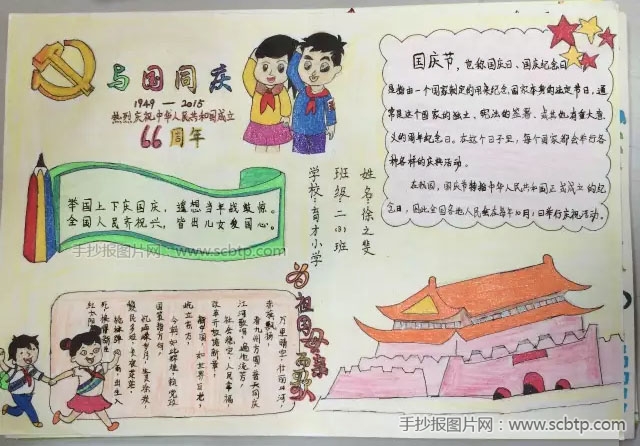 与国同庆
1949—2015
热烈庆祝中华人民共和国成立
66周年
举国上下庆国庆，遥想当年战鼓惊。
全国人民齐祝兴，皆出儿女爱国心。
姓名：徐之斐
班级：二(3)班
学校：育才小学
国庆节，也称国庆日、国庆纪念日
是指由一个国家制定的用来纪念国家本身的法定节日，通
常是这个国家的独立、宪法的签署、或其他有重大意
义的周年纪念日。在这个日子里，每个国家都会举行各
种各样的庆典活动。
在我国，国庆节特指中华人民共和国正式成立的纪
念日，因此全国各地人民会在每年10月1日举行庆祝活动。
为祖国母亲而歌
万里晴空，壮丽山河，
赤旗飘扬，
看九州方圆普天同庆
江河歌唱，遍地流芳，
社会稳定，人民幸福
改革开放谱新章，
屹立东方，
手抄报图片网：www.scbtp.com
手抄报图片网：www.scbtp.com